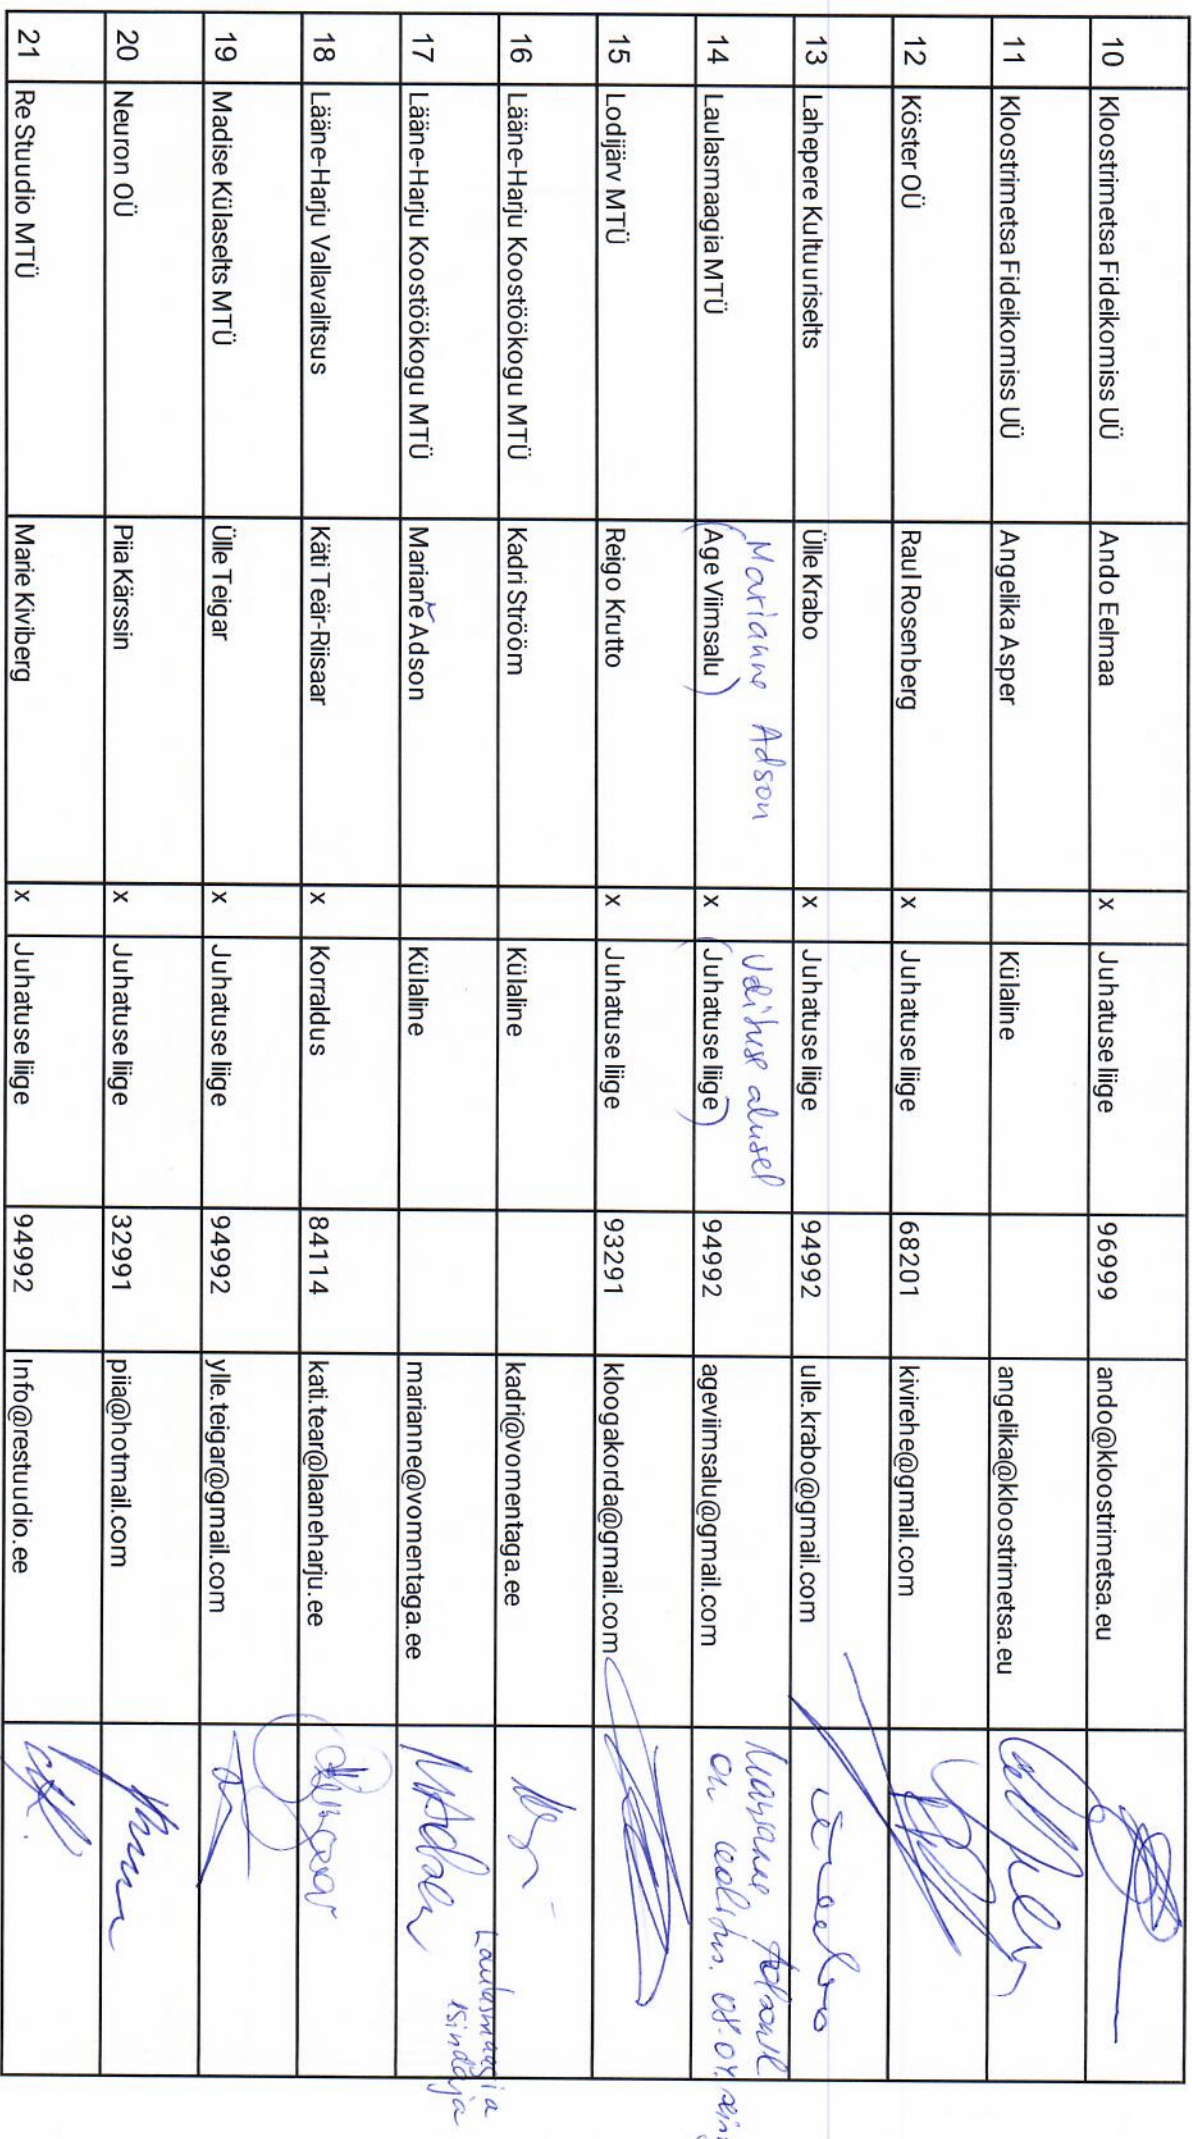 10 Kloostrimetsa Fideikomiss UÜ Ando Eelmaa x Juhatuse liige 96999 ando@kloostrimetsa.eu
11 Kloostrimetsa Fideikomiss UÜ Angelika Asper Külaline angelika@kloostrimetsa.eu
12 Köster OÜ Raul Rosenberg x Juhatuse liige 68201 kivirehe@gmail.com
13 Lahepere Kultuuriselts Ülle Krabo x Juhatuse liige 94992 ulle.krabo@gmail.com
Marianne Adson Volituse alusel Marianne Adsonil
14 Laulasmaagia MTÜ (Age Viimsalu) x (Juhatuse liige) 94992 ageviimsalu@gmail.com on volitus. 08.04.
15 Lodijärv MTÜ Reigo Krutto x Juhatuse liige 93291 kloogakorda@gmail.com
16 Lääne-Harju Koostöökogu MTÜ Kadri Strööm Külaline kadri@vomentaga.ee
17 Lääne-Harju Koostöökogu MTÜ Mariane Adson Külaline marianne@vomentaga.ee MAdson Laulasmaagia
esindaja
18 Lääne-Harju Vallavalitsus Käti Teär-Riisaar x Korraldus 84114 kati.tear@laaneharju.ee
19 Madise Külaselts MTÜ Ülle Teigar x Juhatuse liige 94992 ylle.teigar@gmail.com
20 Neuron OÜ Piia Kärssin x Juhatuse liige 32991 piia@hotmail.com
21 Re Stuudio MTÜ Marie Kiviberg x Juhatuse liige 94992 Info@restuudio.ee